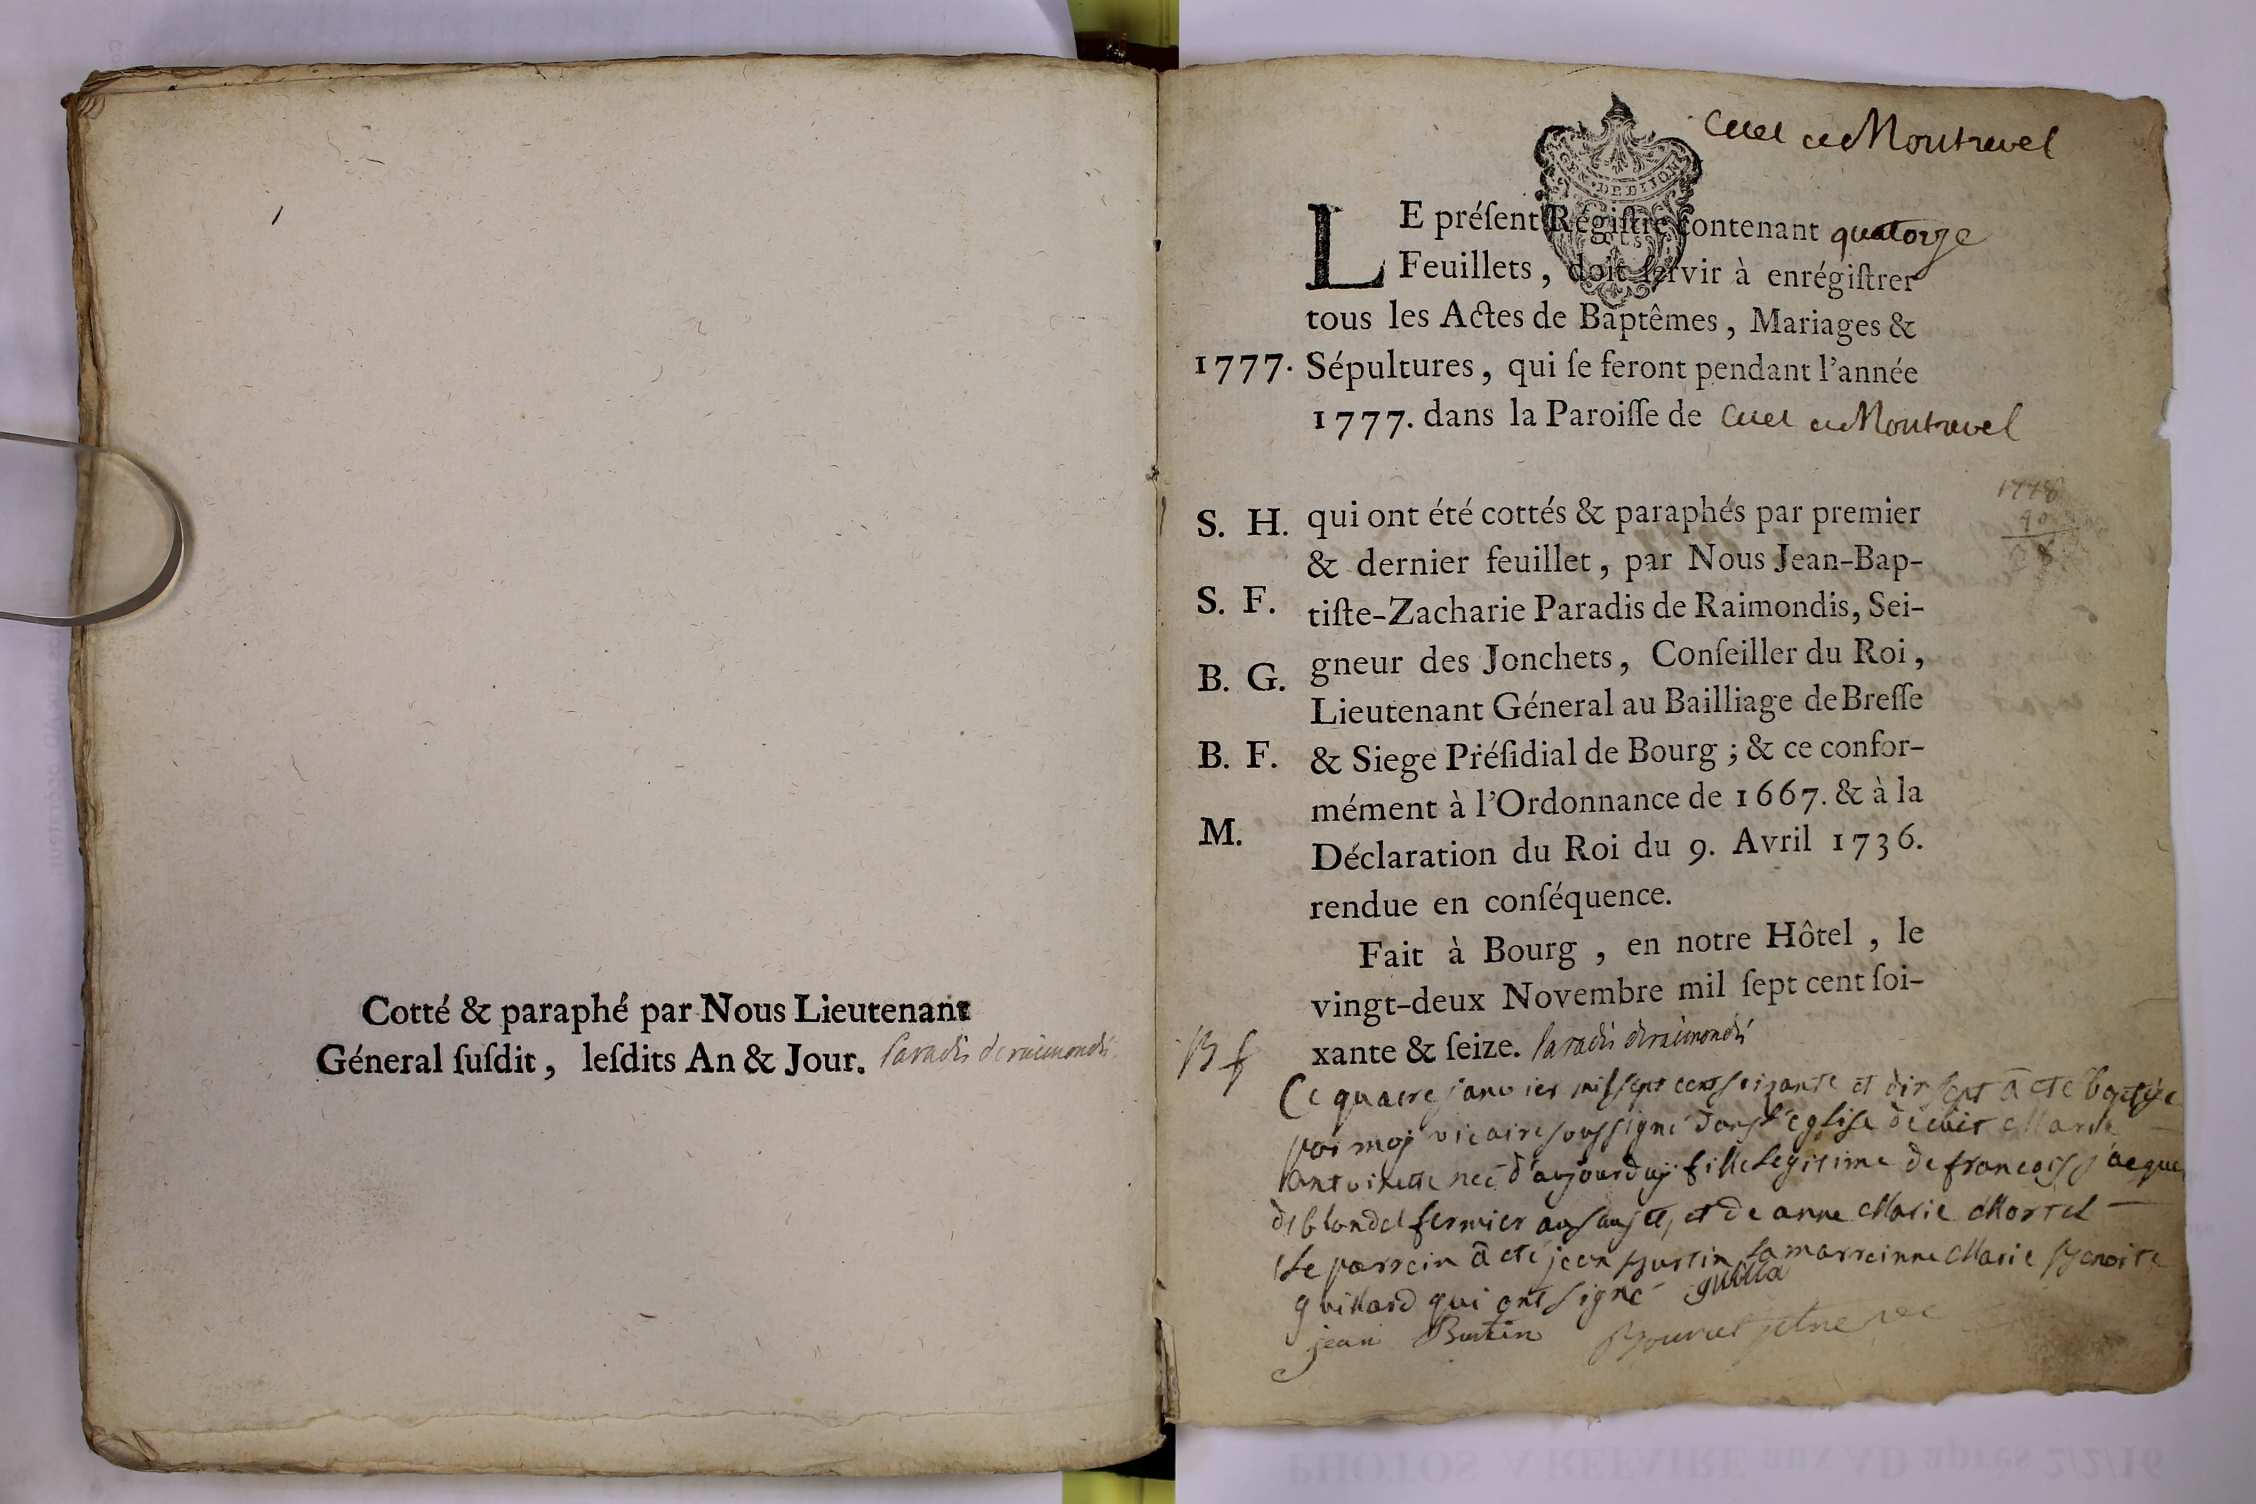 Cotté & paraphé par Nous Lieutenant
Géneral ſuſdit, leſdits An & Jour. Paradis deraimondis
Cuet et Montrevel
GEN. DE DIJON
LE préſent Régiſtre contenant quatorze
Feuillets, doit ſervir à enrégiſtrer
tous les Actes de Baptêmes, Mariages &
1777. Sépultures, qui ſe feront pendant l'année
1777. dans la Paroiſſe de Cuet et Montrevel
1778
90
S. H. qui ont été cottés & paraphés par premier
& dernier feuillet, par Nous Jean-Bap-
S. F. tiſte-Zacharie Paradis de Raimondis, Sei-
B. G. gneur des Jonchets, Conſeiller du Roi,
Lieutenant Géneral au Bailliage de Breſſe
B. F. & Siege Préſidial de Bourg; & ce confor-
mément à l'Ordonnance de 1667. & à la
M. Déclaration du Roi du 9. Avril 1736.
rendue en conſéquence.
Fait à Bourg, en notre Hôtel, le
vingt-deux Novembre mil ſept cent ſoi-
xante & ſeize. Paradis deraimondis
B f
Ce quatre janvier mil sept cent soixante et dixsept a eté baptisée
par moy vicaire soussigné dans l'eglise de cuet Marie
antoinette neé d'aujourduy fille legitime de francois jacque
deblondel fermier au et de anne Marie Mortel
le parrein a eté jean Burtin la marreinne Marie Benoite
guillard qui ont signé
jean Burtin